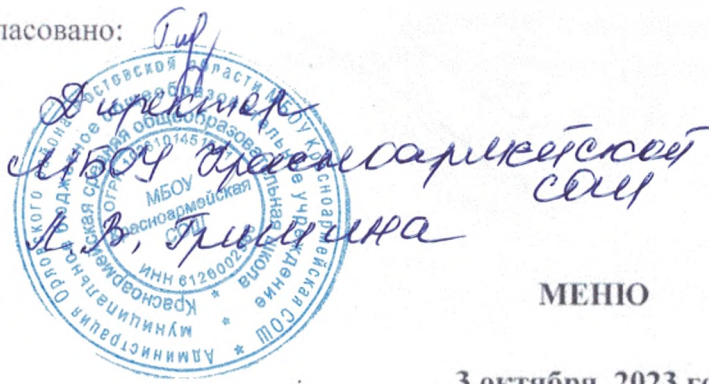 ласовано:
Директор
МБОУ Красноармейской
СОШ
Л.В. Гришина
Администрация Орловского района Ростовской области МБОУ Красноармейская СОШ
муниципальное бюджетное общеобразовательное учреждение
Красноармейская средняя общеобразовательная школа
МБОУ
Красноармейская
СОШ
МЕНЮ
3 октября 2023 го